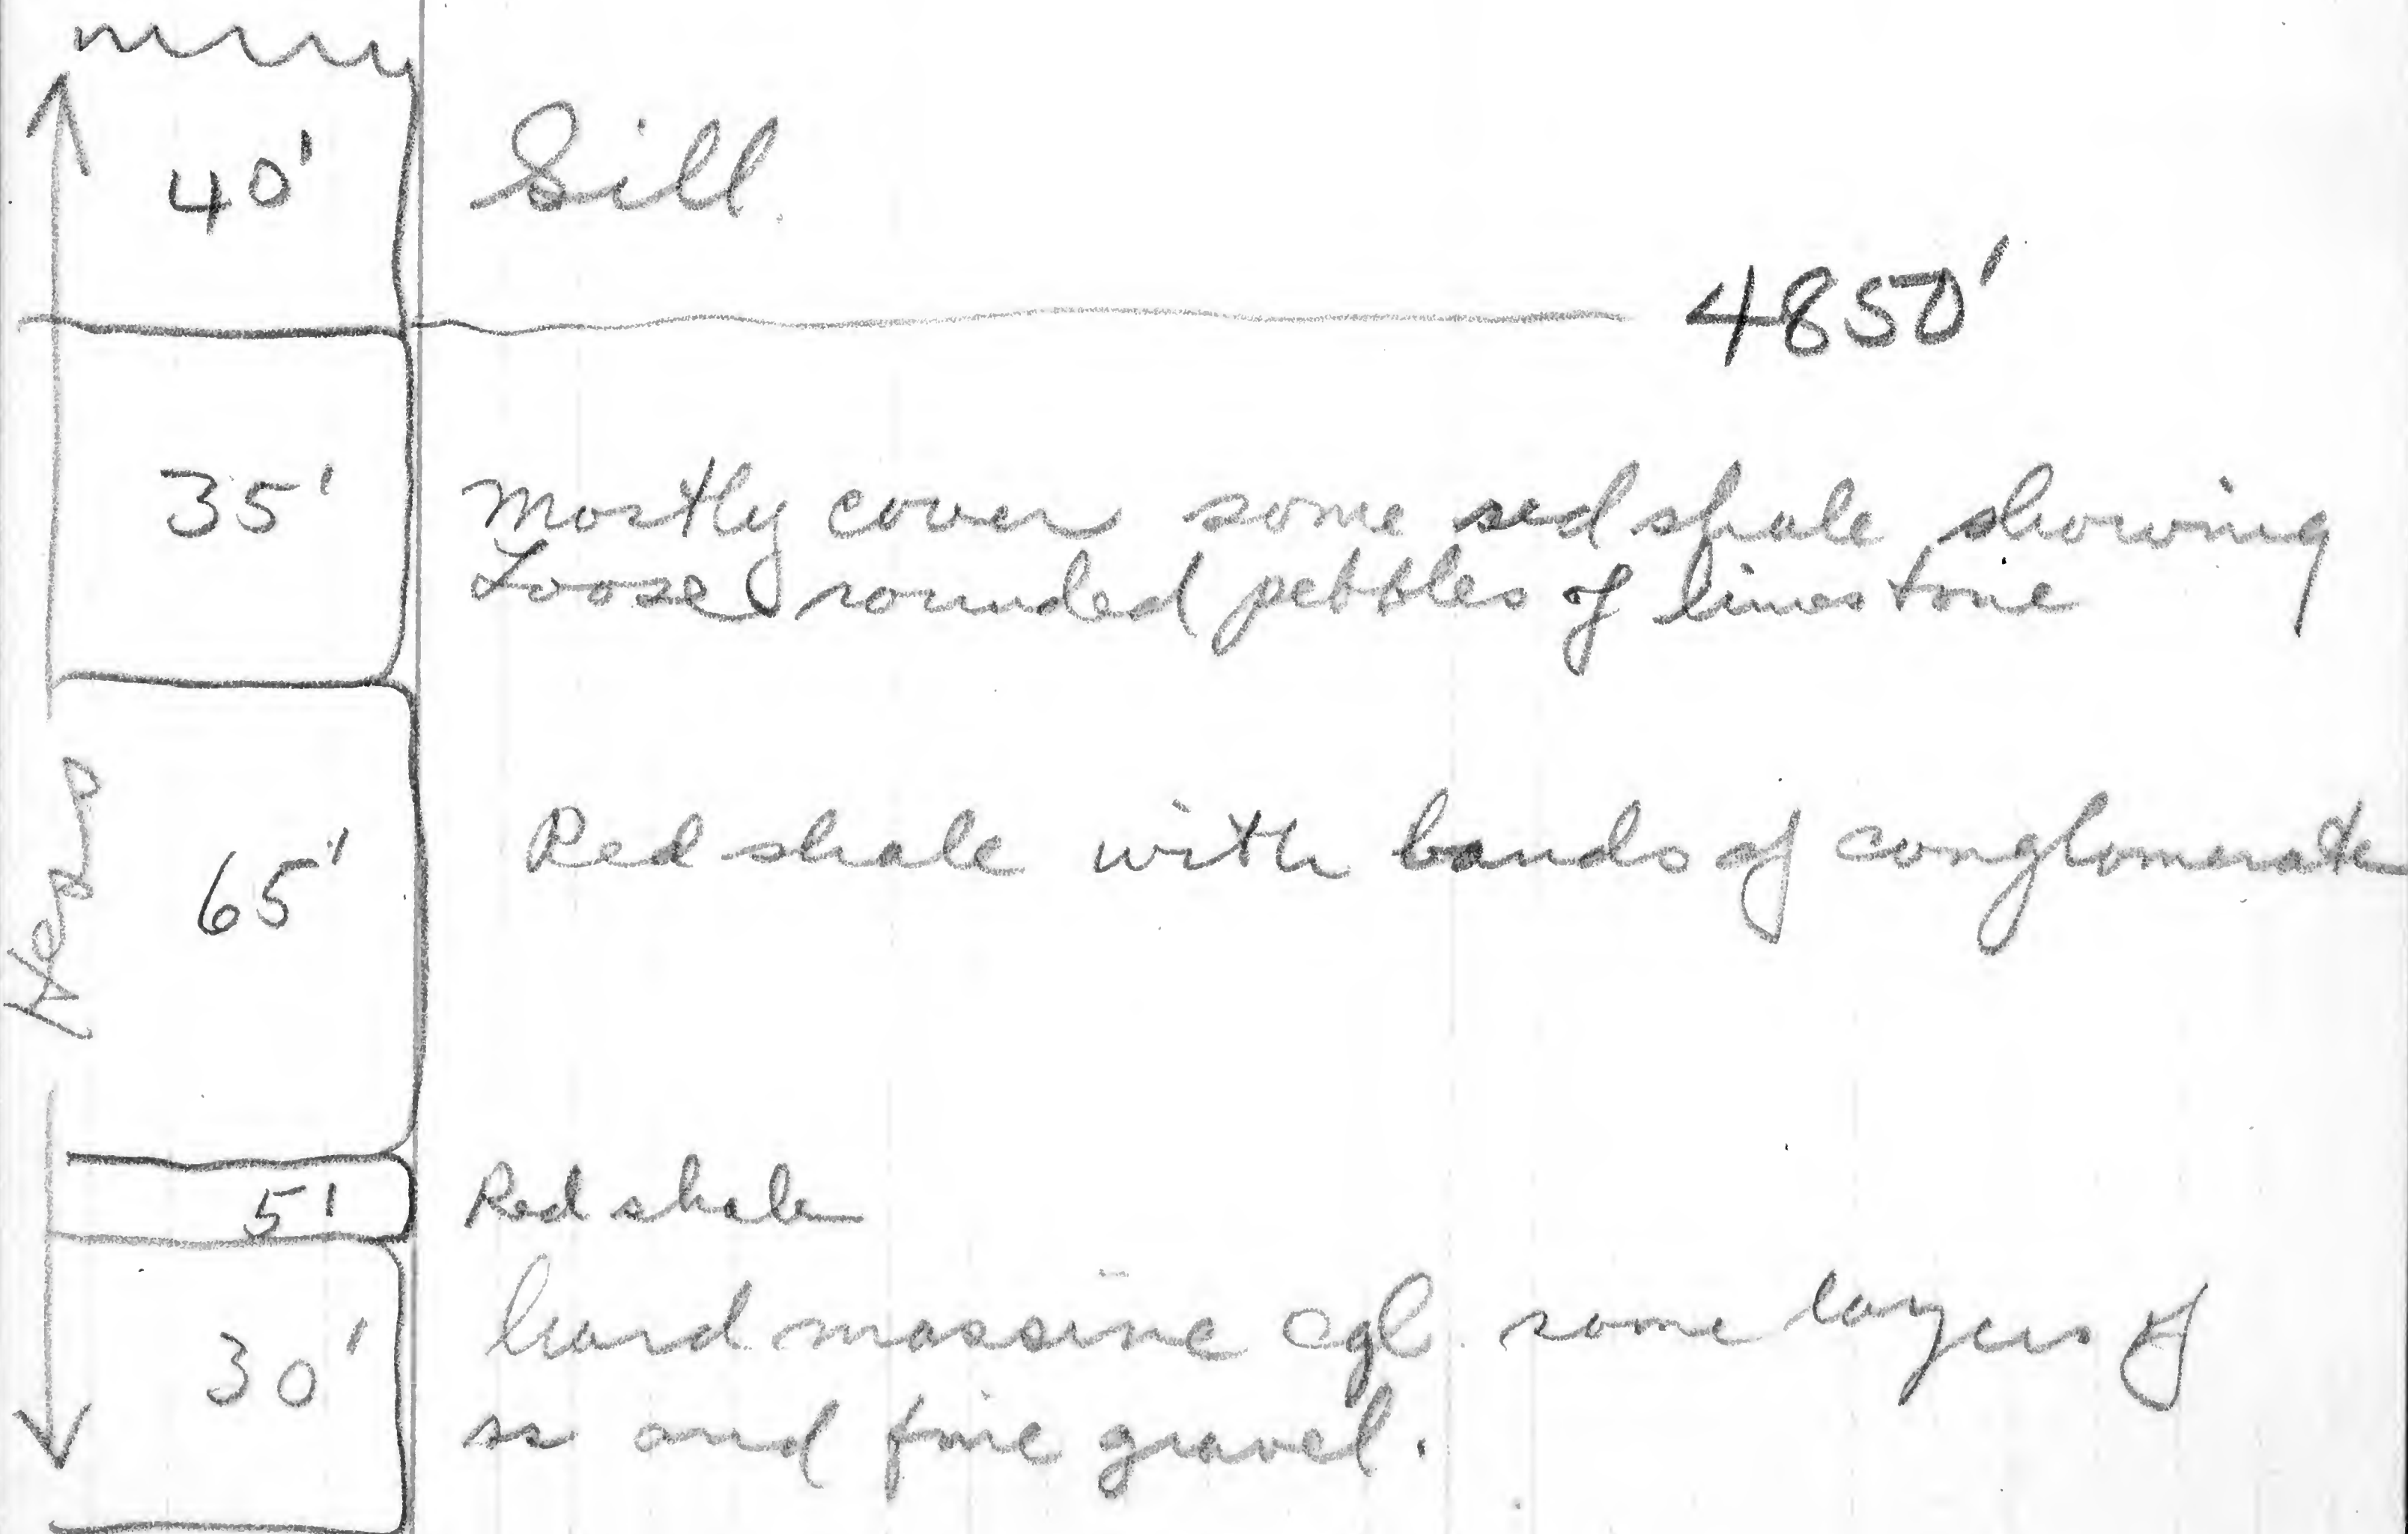 40' Sill.
4850'
35' Mostly cover some red shale showing
Loose rounded pebbles of limestone
65' Red shale with bands of conglomerate
5' Red shale
30' hard massive cgl. some layers of
ss and fine gravel.